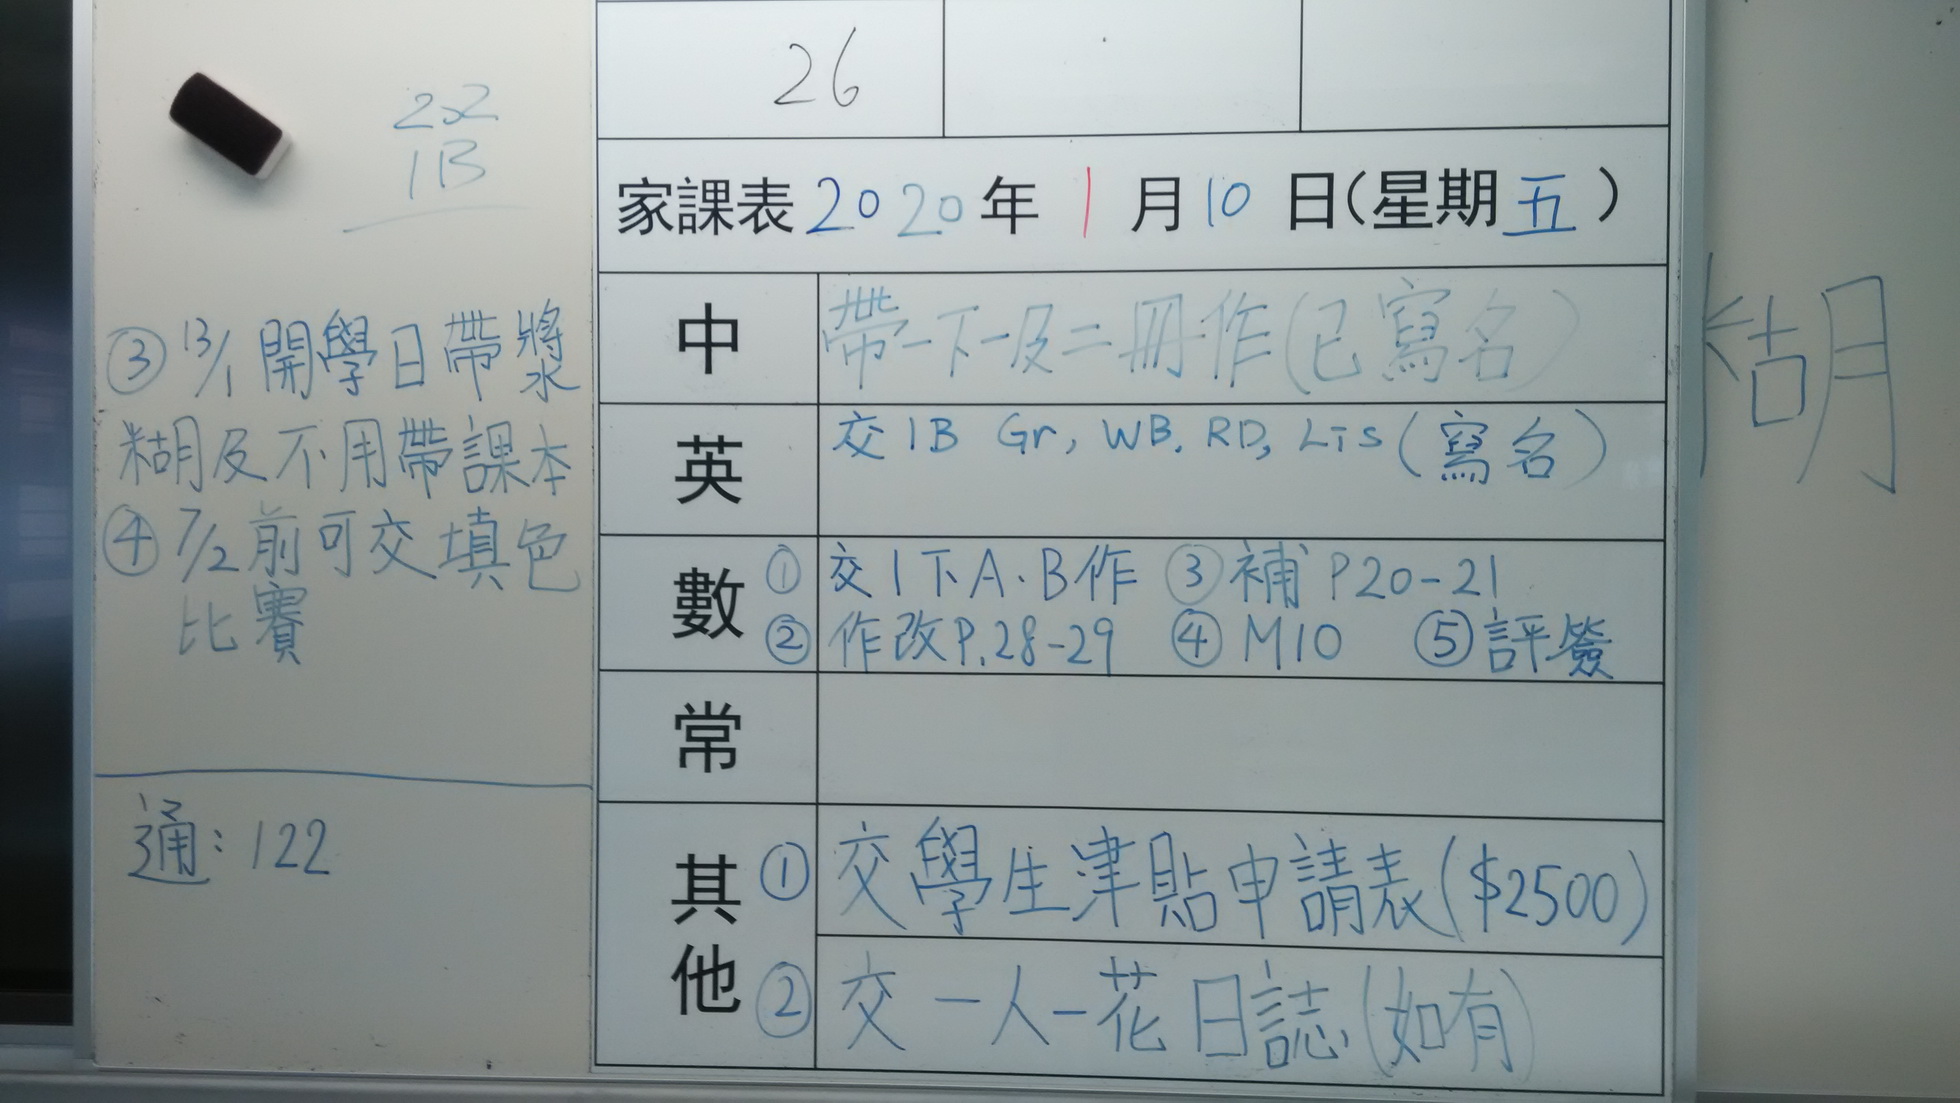 26
家課表2020年1月10日(星期五)
中 帶一下一及二冊作(已寫名)
英 交1B Gr, WB, RD, Lis (寫名)
數 ①交1下A.B作 ③補P20-21
②作改P.28-29 ④M10 ⑤評簽
常
其他 ①交學生津貼申請表($2500)
②交一人一花日誌(如有)
1B
③13/1開學日帶漿
糊及不用帶課本
④7/2前可交填色
比賽
通:122
糊